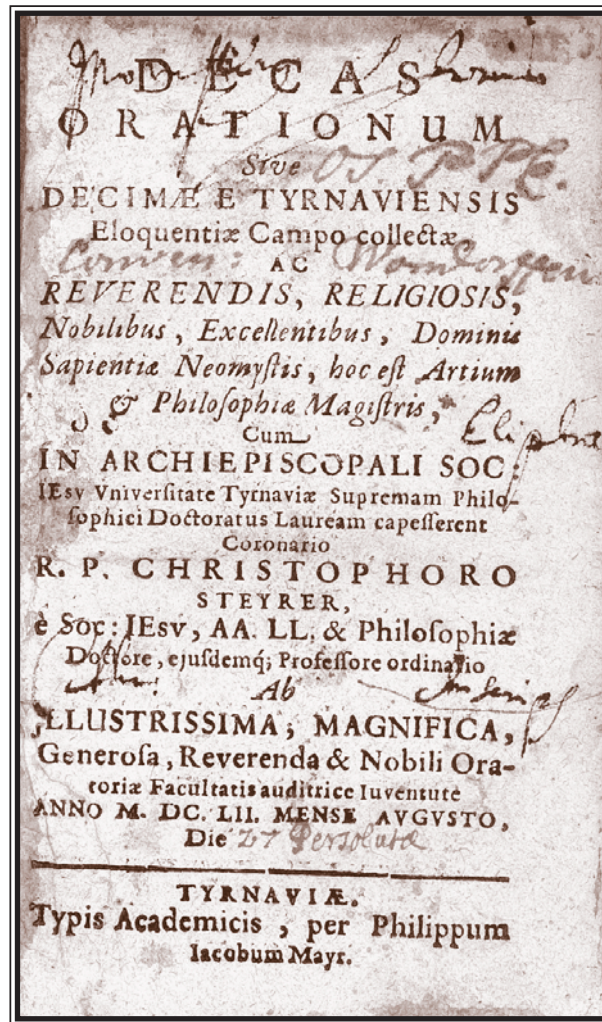 DECAS
ORATIONUM
Sive OS PP
DECIMÆ E TYRNAVIENSIS
Eloquentiæ Campo collectæ,
Conven:
AC
REVERENDIS, RELIGIOSIS,
Nobilibus, Excellentibus, Dominis
Sapientiæ Neomyſtis, hoc eſt Artium
& Philoſophiæ Magiſtris,
Cum
IN ARCHIEPISCOPALI SOC:
IEsv Vniverſitate Tyrnaviæ Supremam Philo-
ſophici Doctoratus Lauream capeſſerent
Coronario
R. P. CHRISTOPHORO
STEYRER,
è Soc: IEsv, AA. LL. & Philoſophiæ
Doctore, ejuſdemq; Profeſſore ordinario
Ab
ILLUSTRISSIMA, MAGNIFICA,
Generoſa, Reverenda & Nobili Ora-
toriæ Facultatis auditrice Iuventute
ANNO M. DC. LII. MENSE AVGVSTO,
Die 27 Persolutæ
TYRNAVIÆ.
Typis Academicis, per Philippum
Iacobum Mayr.